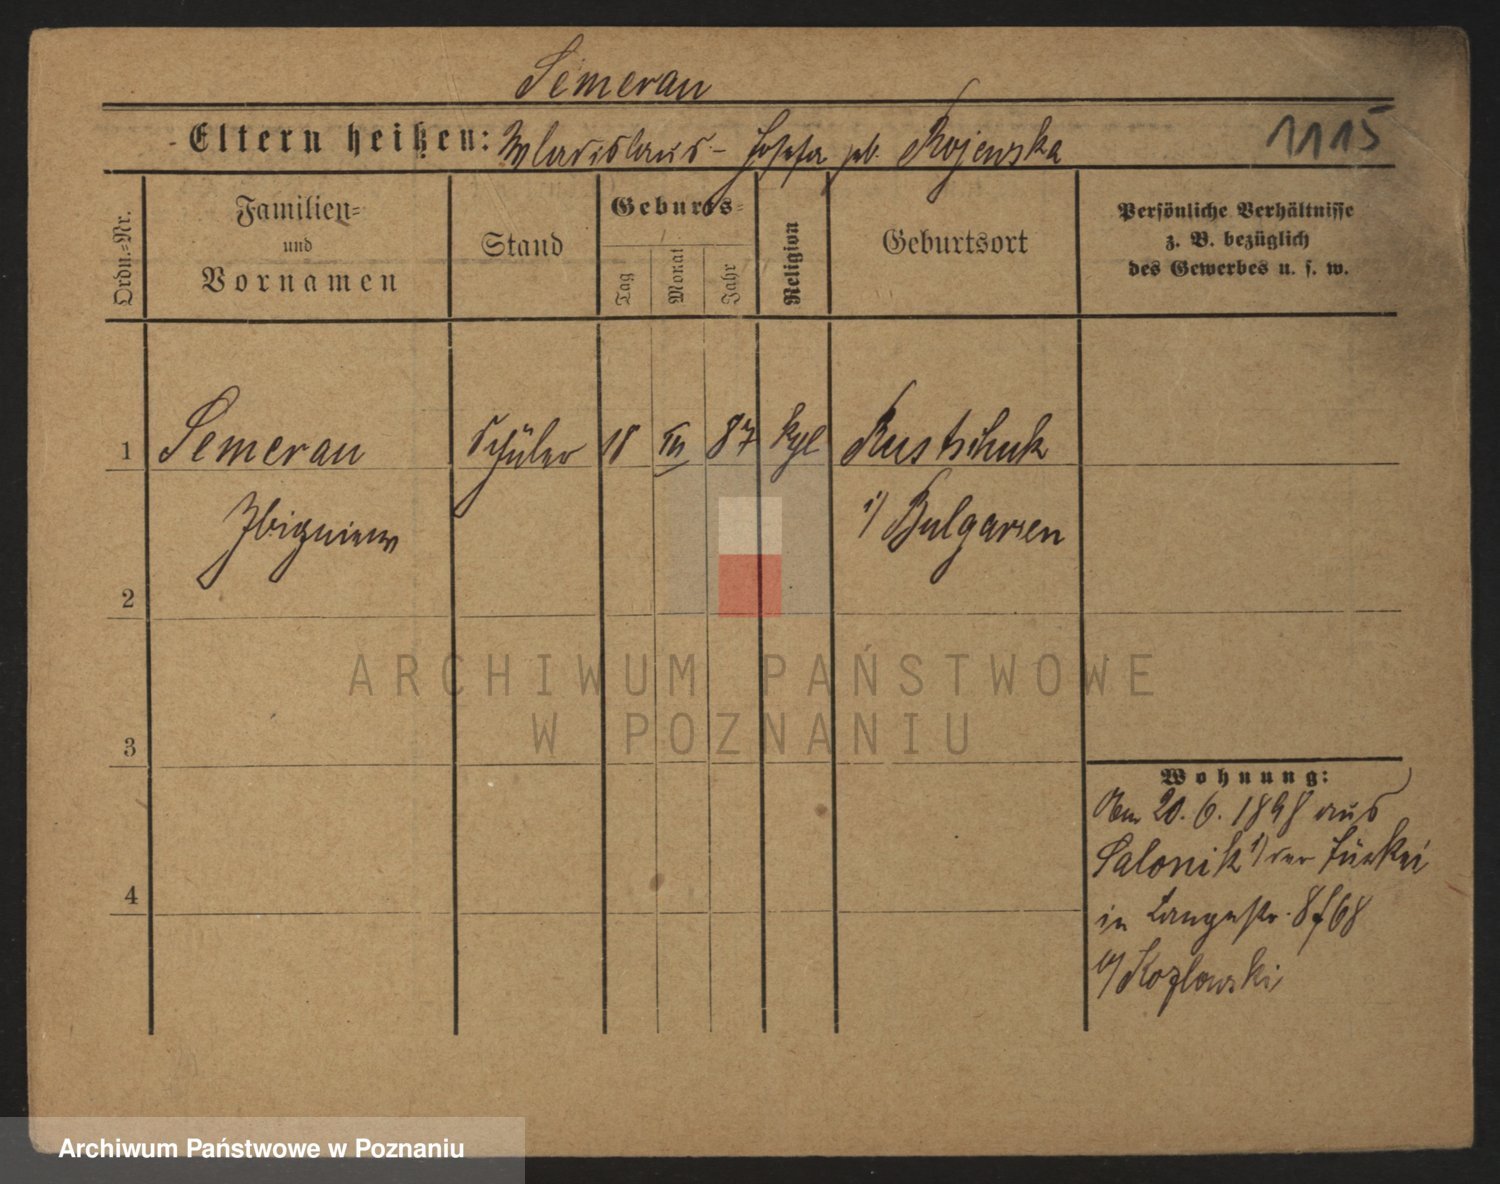 Semerau
Eltern heißen: Wladislaus - Josefa geb. Kojewska
1115
Ordn.=Nr.
Familien=
und
Vornamen
Stand
Geburts=
Tag
Monat
Jahr
Religion
Geburtsort
Persönliche Verhältnisse
z. B. bezüglich
des Gewerbes u. s. w.
1 Semerau Schüler 18 III 87 kgl Rustschuk
Zbigniew i/ Bulgarien
2
ARCHIWUM PAŃSTWOWE
W POZNANIU
3
Wohnung:
20. 6. 1898 aus
Salonik i/ der Türkei
4
in Langestr. 8 f 68
b/ Kozlowski
Archiwum Państwowe w Poznaniu